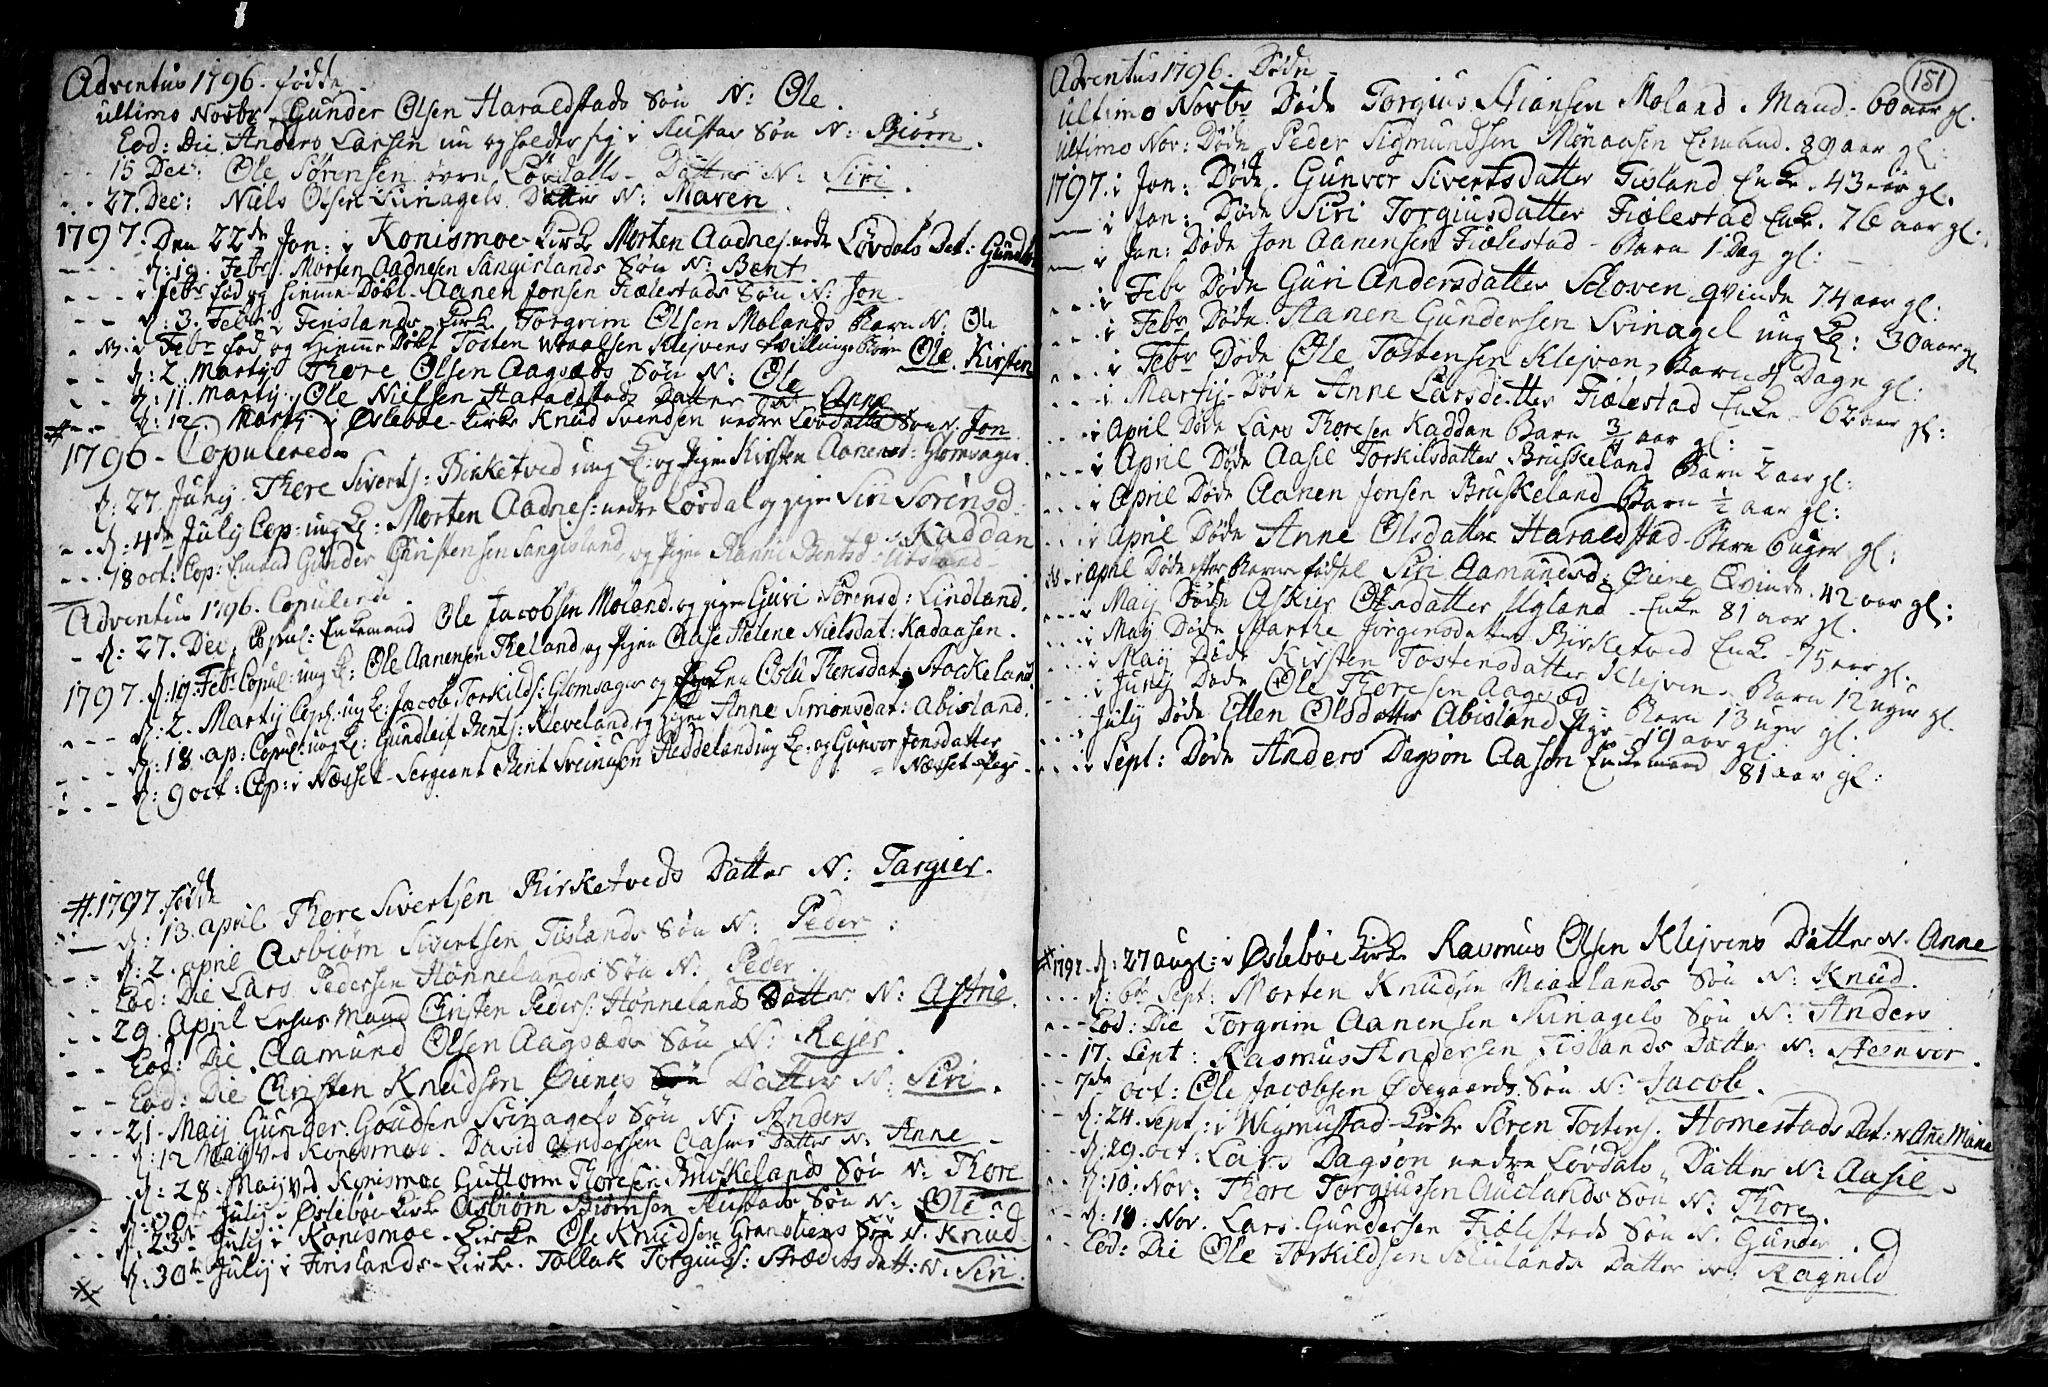 Adventus 1796. fødde
ultimo Novbr Gunder Olsen Haraldstads Søn N: Ole.
Eod: Die Anders Larsen nu opholder sig i Rustas Søn N: Biørn.
15 Dec: Ole Sørensen øvre Løvdalls Datter N: Siri.
27. Dec: Niels Olsen Svinagels Datter N: Maren
1797. Den 22de Jan: i Konismoe Kirke Morten Aadnes. nedre Løvdals Dat:
d: 19. Febr. Morten Aadnesen Sangislands Søn N: Bent
i Febr fød og hiemme Døbt Aanen Jonsen Fiælestads Søn N: Jon
d: 3. Febr i Finslands Kirke, Torgrim Olsen Molands Barn N: Ole
i Febr fød og hiemme Døbt Tosten Klejvens Tvillinge Børn Ole. Kirsten
d: 2. Martij Thore Olsen Aagsæds Søn N: Ole
d: 11. Martij Ole Nielsen Haraldstads Datter Anne
# d: 12. Martij i Øslebøe Kirke Knud Svendsen nedre Løvdals Søn N: Jon
1796 - Copulerede
d: 27. Junij. Thore Siverts: Birketved ung K: og Pigen Kirsten Aanensd: Glomsager.
d: 4de July Cop: ung K: Morten Aadnes: nedre Løvdal og pigen Siri Sørensd.
Kaddan
18 oct: Cop: Gunder Christensen Sangisland, og Pigen
Adventus 1796. Copulerede.
d: 27. Dec. Copul: Enkemand Ole Jacobsen Moland. og pigen Guri Sørensd: Lindland.
1797. d: 19. Febr Copul: ung K: Ole Aanensen Theland og Pigen Aase Helene Nielsdat: Kadaasen.
d: 2. Martij Cop: ung K: Jacob Torkilds: Glomsager og Thorsdat: Stockeland.
d: 18. ap: Copul: ung K: Gundleif Bents: Kleveland, og pigen Anne Simonsdat: Abisland.
d: 9 oct: Cop: i Næset Sergeant Bent Sveinusen Heddeland ung K: og Gunvor Jonsdatter
Næset
#. 1797. fødde
d: 13. april. Thore Sivertsen Birketveds Datter N: Targier.
d: 2. april Asbiørn Sivertsen Fislands Søn N: Peder:
Eod: Die Lars Pedersen Hønnelands Søn N: Peder
29. April Mand Christen Peders: Hønnelands Datter N: Astrie.
Eod: Die. Aamund Olsen Aagsæds Søn N: Rejer.
Eod: Die Christen Knudsen Øienes Datter N: Siri.
21 Maij Gunder Svinagels Søn N: Anders
d: 12 Maij ved Konismoe. David Andersen Aasens Datter N: Anne
d: 28. Maij ved Konismoe Guttorm Thoresen Bruskelands Søn N: Thore
d: 30te July i Øslebøe Kirke Asbiørn Biørnsen Rustads Søn N: Ole
d: 23de July i Konismoe Kirke Ole Knudsen Søn N. Knud
d: 30te July i Finslands Kirke. Tallak Torgiuss: Strædets datt: N. Siri
151
Adventus 1796. Døde
ultimo Novbr Døde Torgius Moland. Mand. 60 aar gl.
ultimo Nov: Døde Peder Sigmundsen Mønaasen Emand. 89 aar gl:
1797. i Jan: Døde. Gunvor Sivertsdatter Fisland Enke. 43 aar gl.
i Jan: Døde Siri Torgiusdatter Fiælestad Enke. 76 aar gl:
i Jan: Døde Jon Aanensen Fiælestad Barn 1 Dag gl:
i Febr Døde Guri Andersdatter Skoven qvinde 74 aar gl:
i Febr Døde Aanen Gundersen Svinagel ung K: 30 aar gl
i Febr Døde Ole Tostensen Klejven, Barn 4 Dage gl:
i Martij Døde Anne Larsdatter Fiælestad Enke 62 aar gl:
i April Døde Lars Thoresen Kaddan Barn 3/4 aar gl:
i April Døde Aasil Torkilsdatter Bruskeland Barn 2 aar gl:
i April Døde Aanen Jonsen Bruskeland Barn 1/2 aar gl:
i April Døde Anne Olsdatter Haraldstad Barn 6 uger gl:
i April Døde efter Barns fødsel Siri Aamundsd: Øiene Qvinde. 42 aar gl:
i Maij Døde Askier Olsdatter Ugland Enke 81 aar gl.
i Maij Døde Marthe Jørgensdatter Birketved Enke 75 aar gl.
i Maij Døde Kirsten Tostensdatter Klejven. Barn 12 uger gl.
i Junij Døde Ole Thoresen Aagsæd Barn 13 uger gl.
i July Døde Ellen Olsdatter Abisland Pige 19 aar gl.
i Sept: Døde Anders Dagsøn Aasen Enkemand 81 aar gl:
* 1797. d: 27 augl: i Øslebøe Kirke Rasmus Olsen Klejvens Datter N. Anne
d: 6te Sept: Morten Knudsen Søn N: Knud.
Eod: Die Torgrim Aanensen Svinagels Søn N: Anders
17. Sept: Rasmus Andersen Fislands Datter N: Steenvor.
7de oct: Ole Jacobsen Ødegaards Søn N: Jacob.
d: 24. Sept: i Wigmustad Kirke Søren Tostens. Homestads Dat: N Añe Maria
d: 29. oct: Lars Dagsøn nedre Løvdals, Datter N: Aasil
d: 10. Nov: Thore Torgiussen Auslands Søn N: Thore.
d: 18. Nov. Lars Gundersen Fiælestads Søn N: Gunder.
Eod: Die Ole Torkildsen Datter N: Ragnild